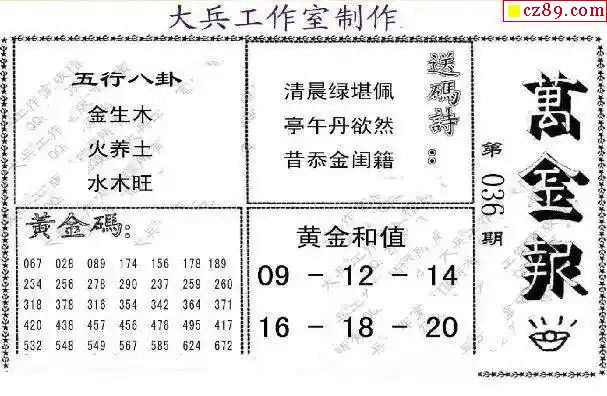 大兵工作室制作
cz89.com
五行八卦
金生木
火养土
水木旺
送碼詩:
清晨绿堪佩
亭午丹欲然
昔忝金闺籍
萬金報
第036期
黄金碼:
067 028 089 174 156 178 189
234 256 278 290 237 259 260
318 379 316 354 342 364 371
420 438 457 456 478 495 417
532 548 549 567 585 624 672
黄金和值
09 - 12 - 14
16 - 18 - 20